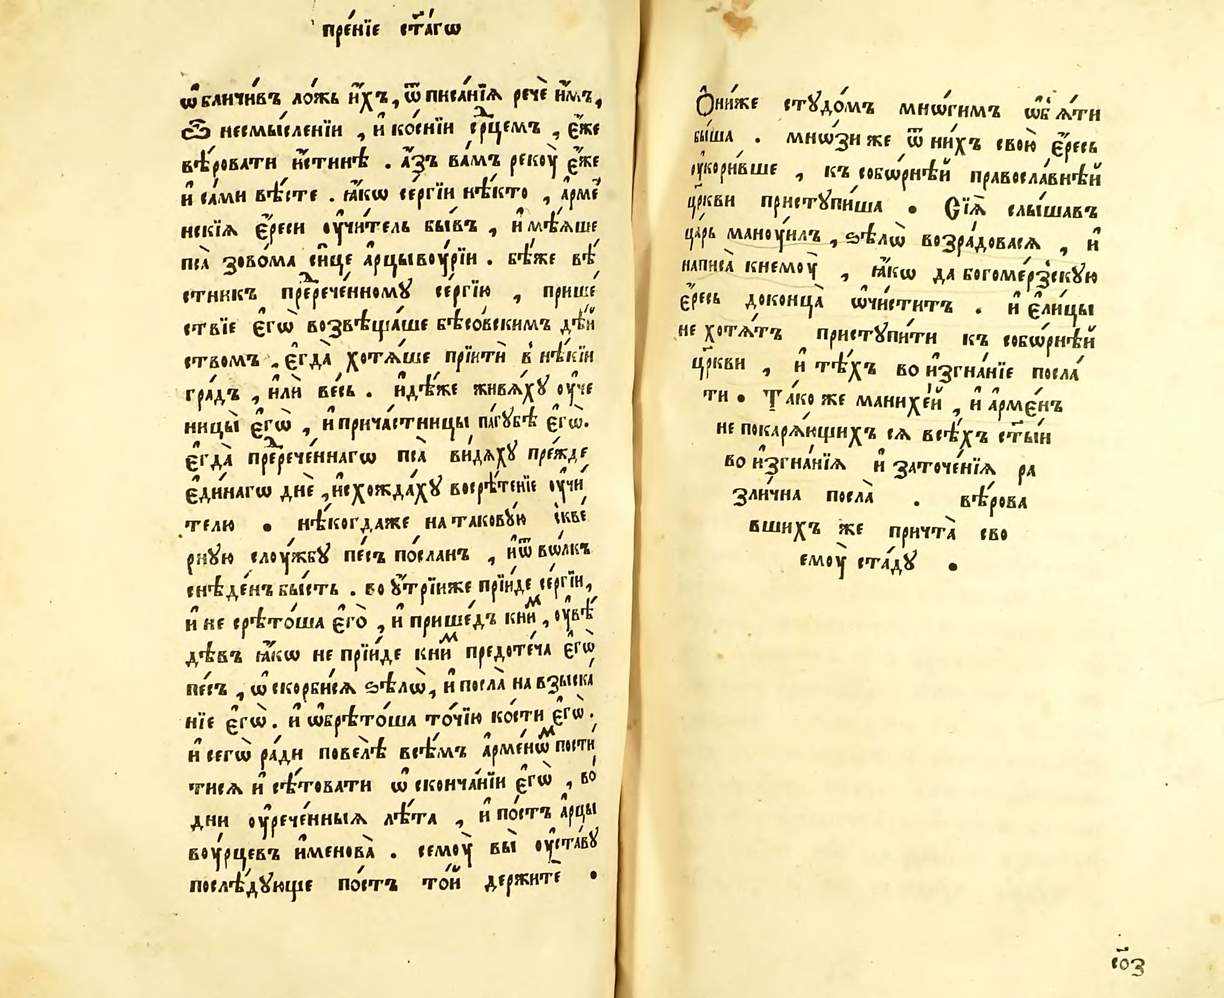 прє́нїе ст҃а́гѡ
ѡ҆бличи́въ ло́жь и҆́хъ, ѿ писа́нїѧ речѐ и҆̀мъ,
ѽ несмы́сленїи , и҆ ко́снїи се́рⷣцемъ , є҆́же
вѣ́ровати и҆́стинѣ . а҆́зъ ва́мъ рекоу̀ є҆́же
и҆ са́ми вѣ́сте . ꙗ҆́кѡ се́ргїи нѣ́кто , а҆рме́
нскїѧ є҆́реси оу҆чи́тель бы́въ , и҆ мѣ́ѧше
пса̀ зовома си́це а҆рцывоу́рїи . бѣ́же вѣ́
стникъ пре́ⷣрече́нному се́ргїю , прише́
ствїе є҆гѡ̀ возвѣща́ше бѣсо́вскимъ дѣ́й
ствомъ . є҆гда̀ хотѧ́ше прїитѝ в̾ нѣ́кїи
гра́дъ , и҆лѝ ве́сь . и҆дѣ́же живѧ́хꙋ оу҆че
ницы̀ є҆гѡ̀ , и҆ прича́стницы па́гꙋбѣ є҆гѡ̀.
є҆гда̀ пре́ⷣрече́ннагѡ пса̀ ви́дѧхꙋ пре́жде
є҆ди́нагѡ днѐ , и҆схожда́хꙋ восрѣ́тенїе оу҆чи́
телю . нѣ́когдаже на таковꙋ́ю скве́
рнꙋю слоу́жбꙋ пе́съ по́сланъ , и҆ ѿ во́лкъ
снѣде́нъ бы́сть . во ᲂу҆́трїиже прїи́де се́ргїи,
и҆ не срѣто́ша є҆го̀ , и҆ прише́дъ книⷨ , оу҆вѣ́
дѣвъ ꙗ҆́кѡ не прїи́де книⷨ предоте́ча є҆гѡ̀
пе́съ , ѡ҆скорби́сѧ ѕѣлѡ̀, и҆ посла̀ на взыска́
нїе є҆гѡ̀. и҆ ѡ҆брѣто́ша то́чїю ко́сти є҆гѡ̀.
и҆ сегѡ̀ ра́ди повелѣ̀ всѣ́мъ а҆рме́нѡⷨ пости́
тисѧ и҆ сѣ́товати ѡ҆ сконча́нїи є҆гѡ̀ , во́
дни оу҆рече́нныѧ лѣ́та , и҆ по́стъ а҆рцы
воу́рцевъ и҆менова̀ . семоу̀ вы̀ оу҆ста́вꙋ
послѣ́дꙋюще по́стъ то́й держитѐ .
Ѻ҆ни́же стꙋдо́мъ мнѡ́гимъ ѡ҆б̾ѧ́ти
бы́ша . мнѡ́зи же ѿ ни́хъ свою̀ є҆́ресь
оу҆кори́вше , къ собѡ́рнѣй правосла́внѣй
цр҃кви пристꙋпи́ша . Сїѧ̀ слы́шавъ
ца́рь маноу́илъ , ѕѣлѡ̀ возра́довасѧ , и҆
написа̀ кнемоу̀ , ꙗ҆́кѡ да богоме́рзскꙋю
є҆́ресь доконца̀ ѡ҆чи́ститъ . и҆ є҆ли́цы
не хотѧ́тъ пристꙋпи́ти къ собѡ́рнѣй
цр҃кви , и҆ тѣ́хъ во и҆згна́нїе посла́
ти . Та́ко же манихе́й , и҆ а҆рме́нъ
не покарѧ́ющихъ сѧ всѣ́хъ ст҃ы́и
во и҆згна́нїѧ и҆ заточе́нїѧ ра
зли́чна посла̀ . вѣ́рова
вшихъ же причта̀ сво
емоу̀ ста́дꙋ .
со҃з